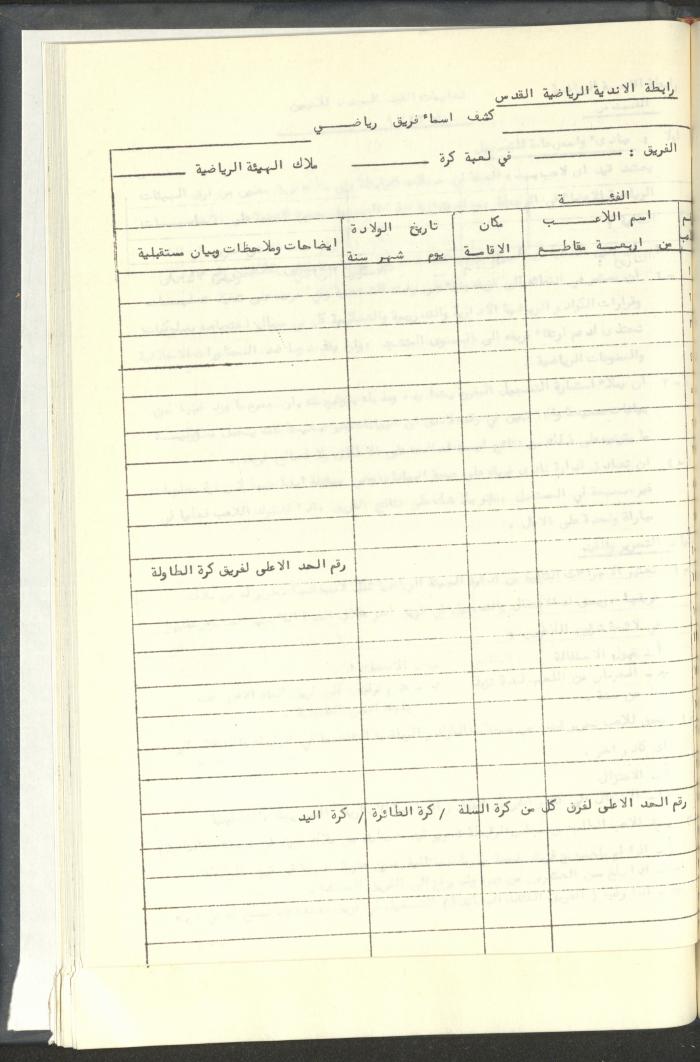 رابطة الاندية الرياضية القدس
كشف اسماء فريق رياضــي
الفريق : في لعبة كرة ملاك الهيئة الرياضية
الفئــــة
اسم اللاعـــب مكان تاريخ الولادة
من اربعـــة مقاطـــع الاقامـة يوم شهر سنة ايضاحات وملاحظات وبيان مستقبلية
رقم الحد الاعلى لفريق كرة الطاولة
رقم الحد الاعلى لفرق كل من كرة السلة / كرة الطائرة / كرة اليد